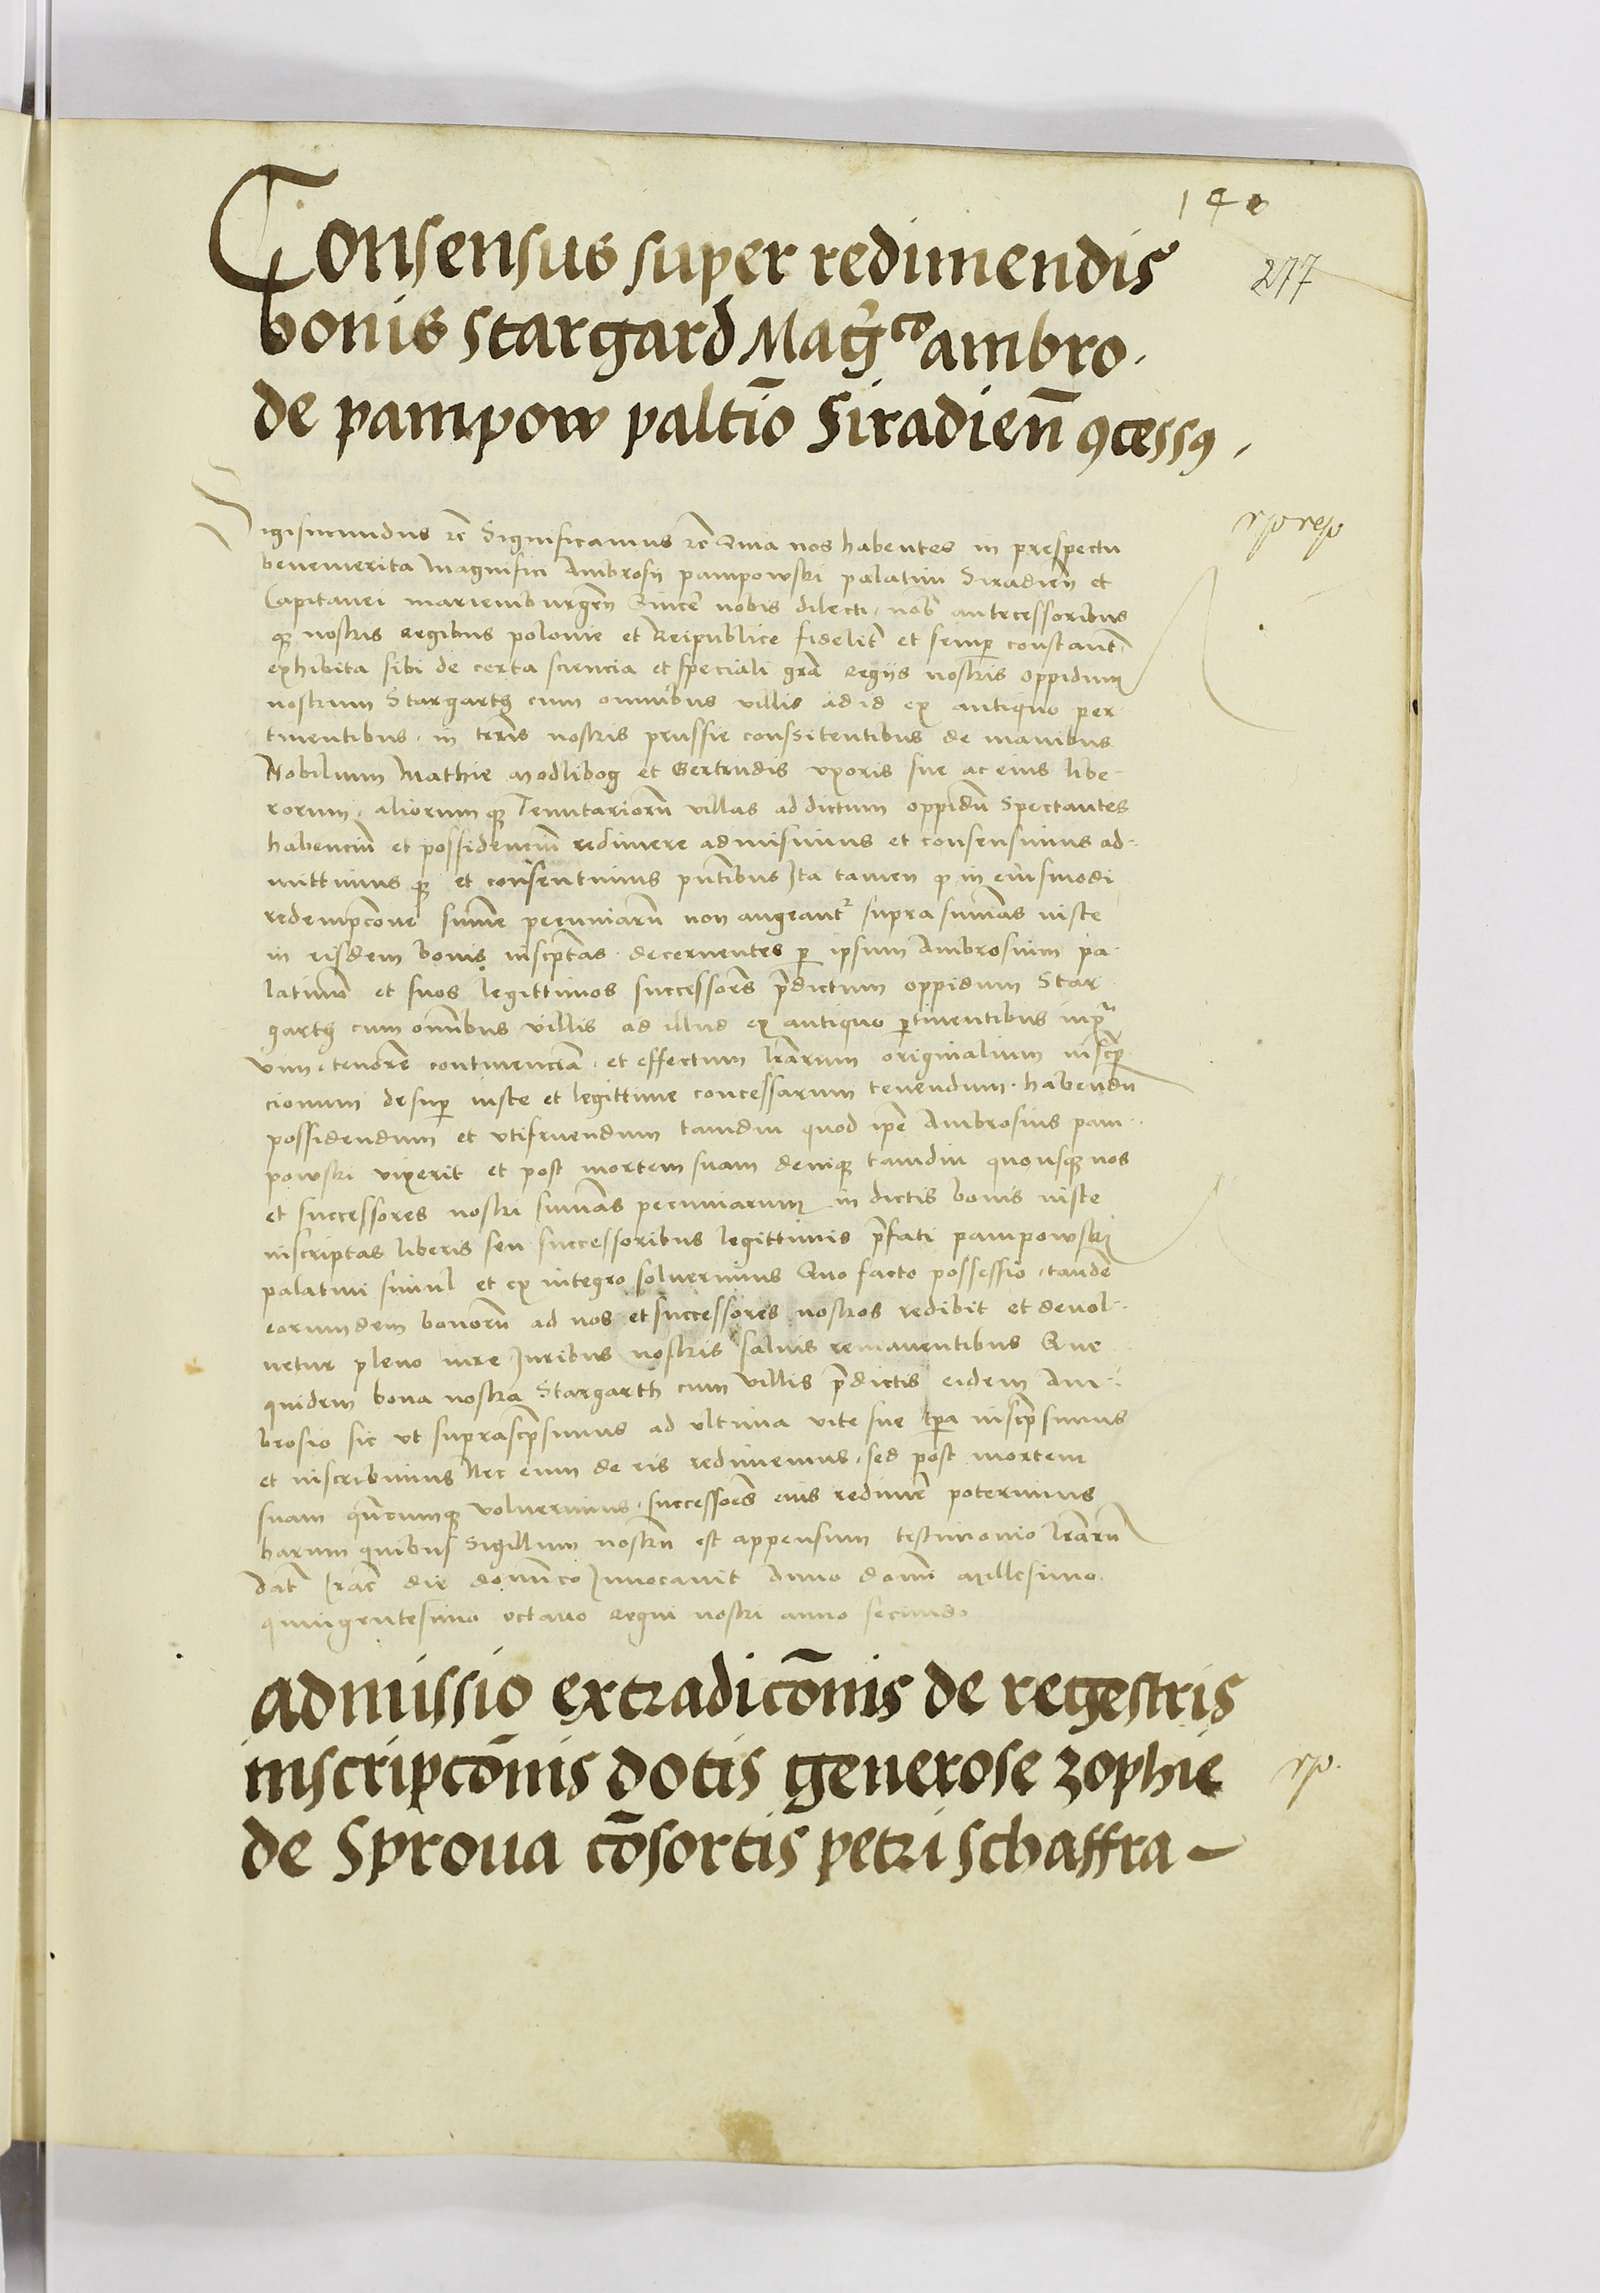 140
277
Consensus super redimendis
bonis Stargard Mag̃co ambro.
de pampow paltĩo Siradien̄ ꝯcessꝯ.
rp rep
Sigismundus rc̃ Significamus rc̃ Quia nos habentes in prespectu
benemerita Magnifici Ambrosij pampowski palatini Siradien̄ et
Capitanei marienburgen̄ Sincere nobis dilecti, nob̃ antecessoribus
qꝫ nostris Regibus polonie et Reipublice fidelit̃ et semꝑ constant̃
exhibita sibi de certa sciencia et speciali grã Regijs nostris oppidum
nostrum Stargarth cum omnibus villis ad id ex antiquo per
tinentibus, in terris nostris prussie consistentibus de manibus
Nobilium Mathie modlibog et Gertrudis vxoris sue ac eius libe-
rorum, aliorum qꝫ Tenutariorũ villas ad dictum oppidũ Spectantes
habenciũ et possidenciũ redimere admisimus et consensimus ad-
mittimus qꝫ et consentimus pñtibus Ita tamen ꝙ in eiusmodi
redempcõne sum̃e pecuniarũ non augeantr̃ supra sum̃as iuste
in eisdem bonis inscp̃tas. decernentes ꝑ ipsum Ambrosium pa-
latinũ et suos legittimos successores p̃dictum oppidum Star
garth cum om̃ibus villis ad illud ex antiquo ꝑtinentibus iuxta
vim, tenorẽ continenciã, et effectum lr̃arum originalium inscp̃
cionum desuꝑ iuste et legittime concessarum tenendum. habendũ
possidendum et vtifruendum tamdiu quod ip̃e Ambrosius pam-
powski vixerit et post mortem suam deniqꝫ tamdiu quousqꝫ nos
et successores nostri sum̃as pecuniarum in dictis bonis iuste
inscriptas liberis seu successoribus legittimis p̃fati pampowski
palatini simul et ex integro soluerimus Quo facto possessio, tandẽ
eorumdem bonorũ ad nos et successores nostros redibit et deuol-
uetur pleno iure Juribus nostris saluis remanentibus Que
quidem bona nostra Stargarth cum villis p̃dictis eidem Am-
brosio sic vt suprascp̃simus ad vltima vite sue tp̃a inscp̃simus
et inscribimus Nec eum de eis redimemus, sed post mortem
suam quãcumqꝫ voluerimus, successoes eius redimẽ poterimus
harum quibus Sigillum nostrũ est appensum testimonio lr̃arũ
Dat̃ Crac̃ die dominco Inuocauit Anno domi millesimo
quingentesimo octauo Regni nostri anno secundo
admissio extradicõnis de regestris
inscripcõnis dotis generose zophie
de Sproua cõsortis petri schaffra
rp.